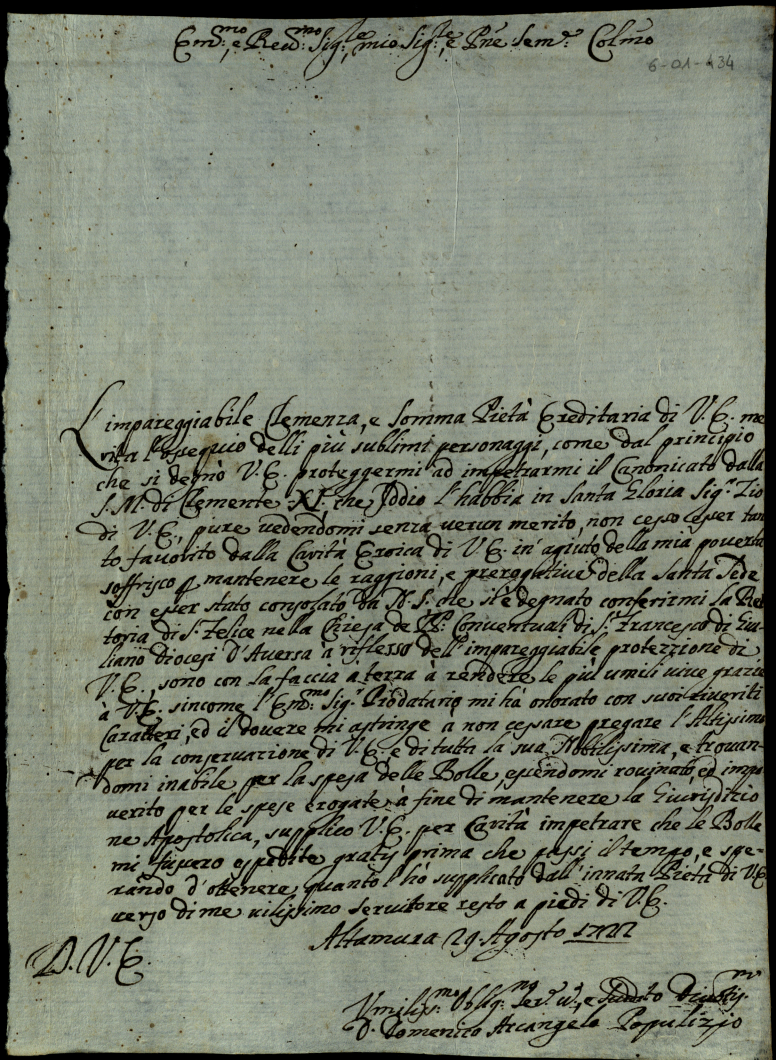 Em.mo, e Reu.mo Sig.re, mio Sig.re, e Pne Sem.e Colmo
6-01-134
L'impareggiabile Clemenza, e Somma Pietà Ereditaria di V.E. me
rita l'ossequio delli più sublimi personaggi, come dal principio
che si degnò V.E. proteggermi ad impetrarmi il Canonicato dalla
S.M. di Clemente XI, che Iddio l'habbia in Santa Gloria Sig.r Zio
di V.E., pure uedendomi senza uerun merito, non cesso esser tan
to fauorito dalla Carità Eroica di V.E. in agiuto della mia pouertà
soffrisco p mantenere le raggioni, e prerogatiue della Santa Sede
con esser stato consolato da N.S. che si è degnato conferirmi la Ret
toria di S. Felice nella Chiesa de PP. Conuentuali di S. Francesco di Giu-
liano Diocesi d'Auersa à riflesso dell'impareggiabile protezzione di
V.E., sono con la faccia a terra à rendere le più umili uiue grazie
à V.E. sincome l'Em.mo Sig.r Prodatario mi hà onorato con suoi riueriti
Caratteri, ed il douere mi astringe à non cessare pregare l'Altissimo
per la conseruazione di V.E. e di tutta la sua Nobilissima, e trouan-
domi inabile per la spesa delle Bolle, essendomi rouinato, ed impo
uerito per le spese erogate à fine di mantenere la Giurisdizio
ne Apostolica, supplico V.E. per Carità impetrare che le Bolle
mi fussero espedite gratis prima che passi il tempo, e spe-
rando d'ottenere quanto l'hò supplicato dall'innata Pietà di V.E.
uerso di me uilissimo seruitore resto a piedi di V.E.
Altamura 29 Agosto 1722
D.V.E.
Umiliss.mo Obblig.mo Ser.e u.o, e Suddito Diuotis.mo
D. Domenico Arcangelo Populizio